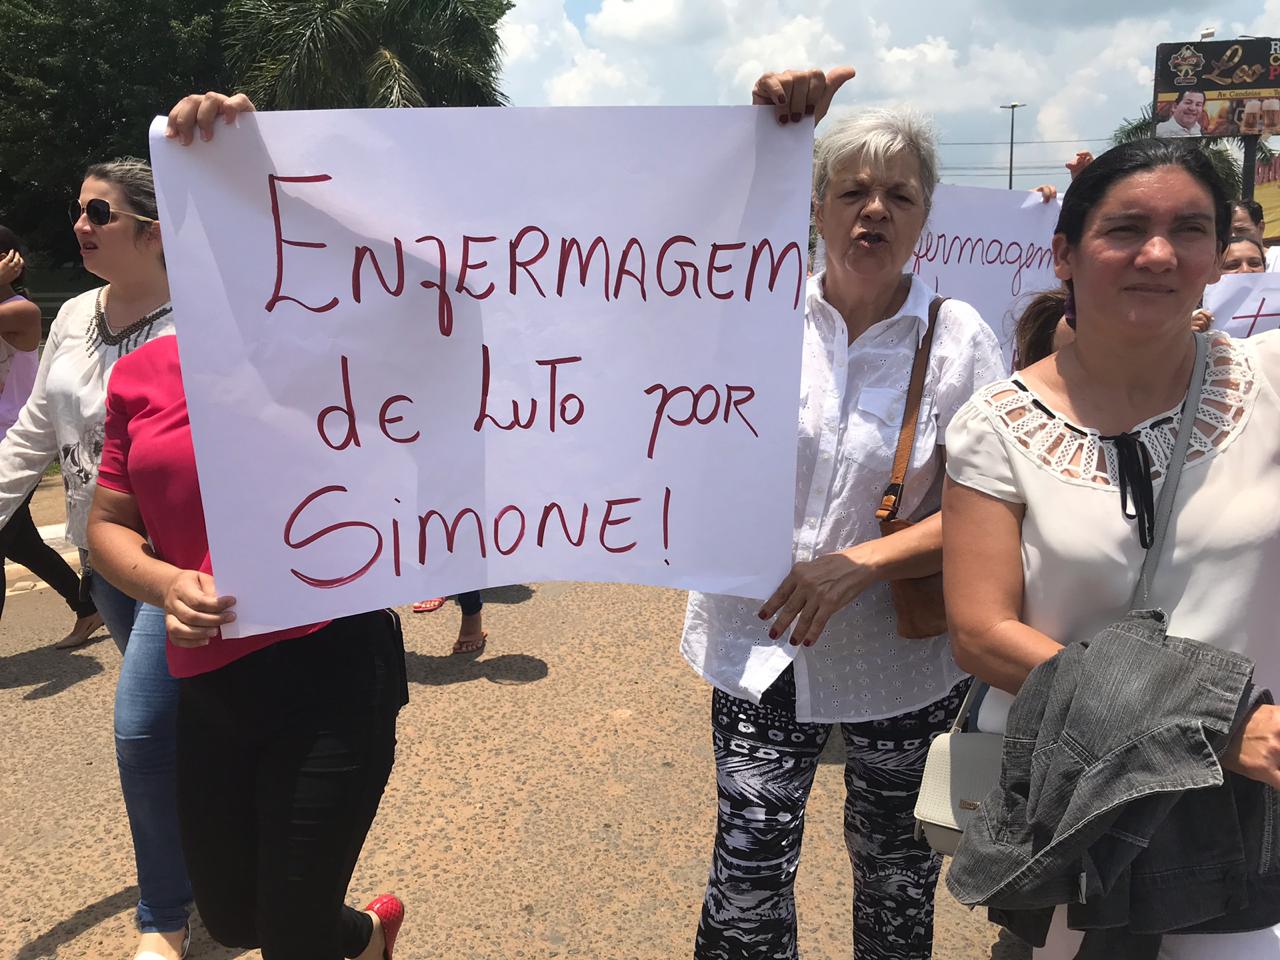 ENFERMAGEM
de LuTo poR
SiMONE!
fermagem
Leo
Av. Candeias